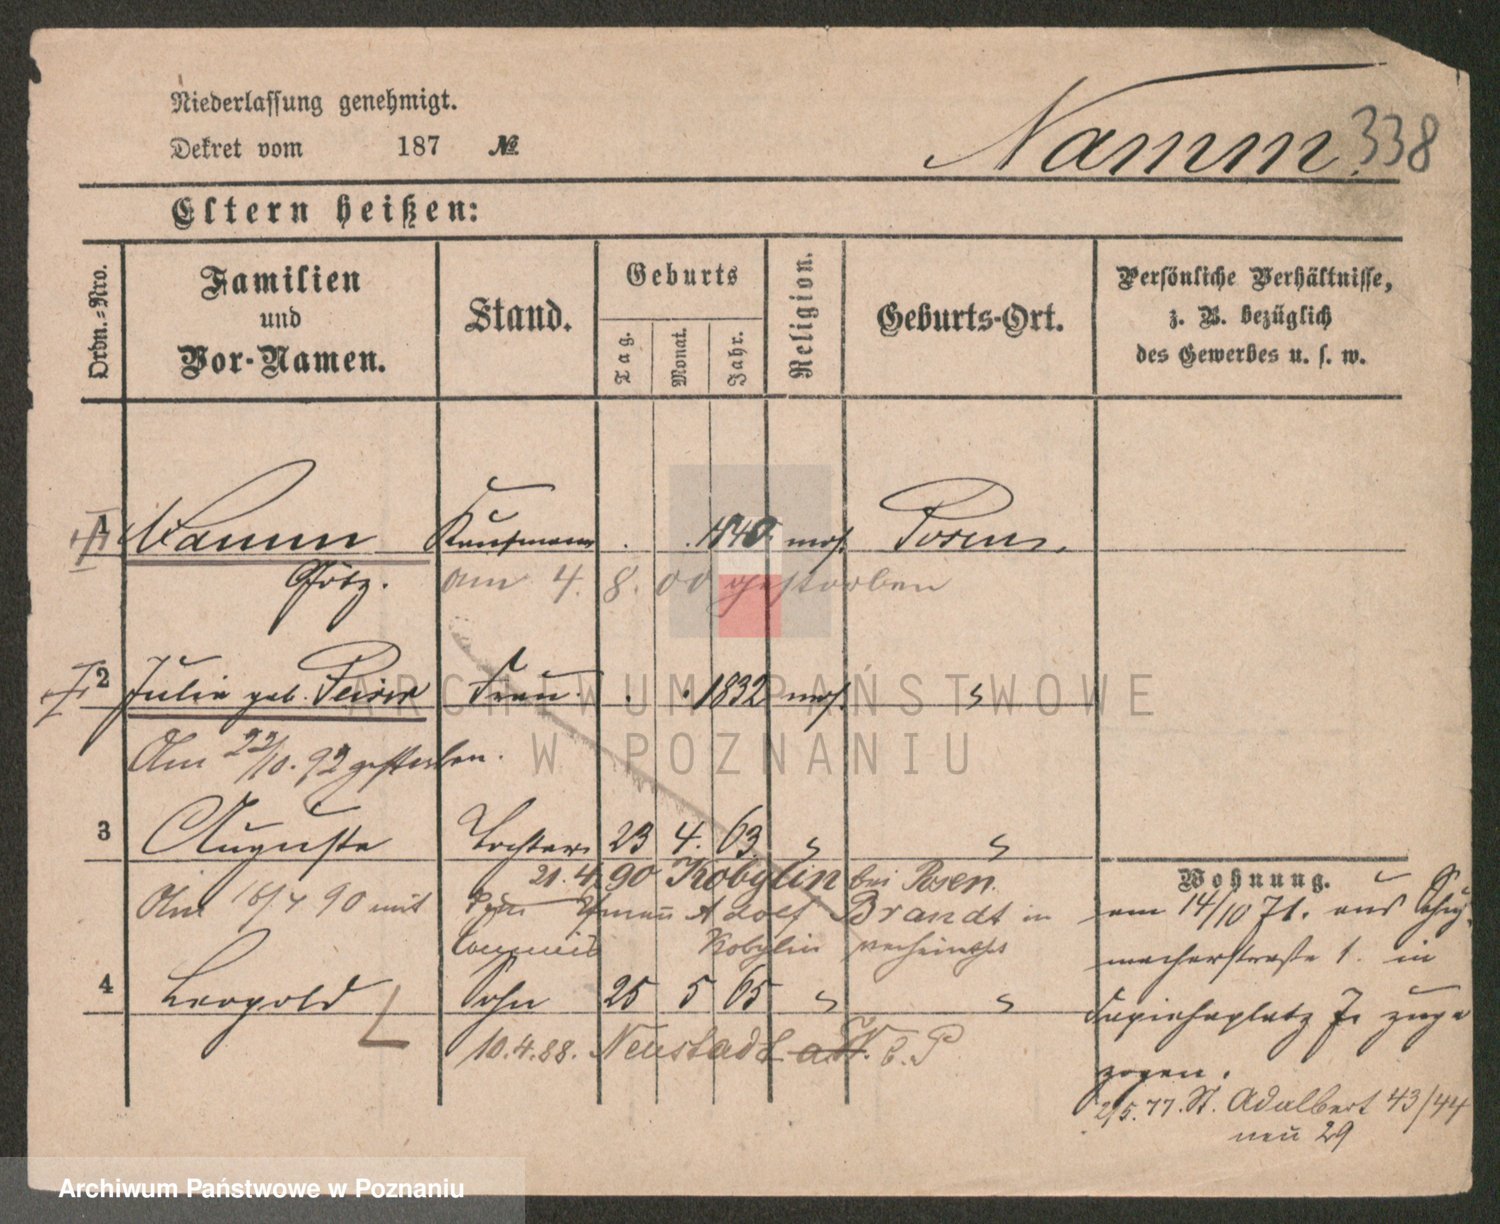 Niederlassung genehmigt.
Dekret vom 187 №
Namm. 338
Eltern heißen:
Ordn.-Nro.
Familien
und
Vor-Namen.
Stand.
Geburts
Tag.
Monat.
Jahr.
Religion.
Geburts-Ort.
Persönliche Verhältnisse,
z. B. bezüglich
des Gewerbes u. s. w.
1 Namm Kaufmann 1840 mos. Posen.
Götz. am 4. 8. 00 gestorben
2 Julie geb. Peiser Frau. 1832 mos. "
Am 22/10. 92 gestorben.
3 Auguste Tochter 23 4. 63. " "
21. 4. 90 Kobylin bei Posen.
Am 16/4 90 mit dem Adolf Brandt in
Kobylin verheirathet
4 Leopold Sohn 25 5 65 " "
10. 4. 88. Neustadt a/W. b. P
Wohnung.
am 14/10 71. aus Schuh-
macherstraße 1. in
Sapiehaplatz 7. zuge
zogen.
2/5. 77. St. Adalbert 43/44
neu 29
ARCHIWUM PAŃSTWOWE
W POZNANIU
Archiwum Państwowe w Poznaniu